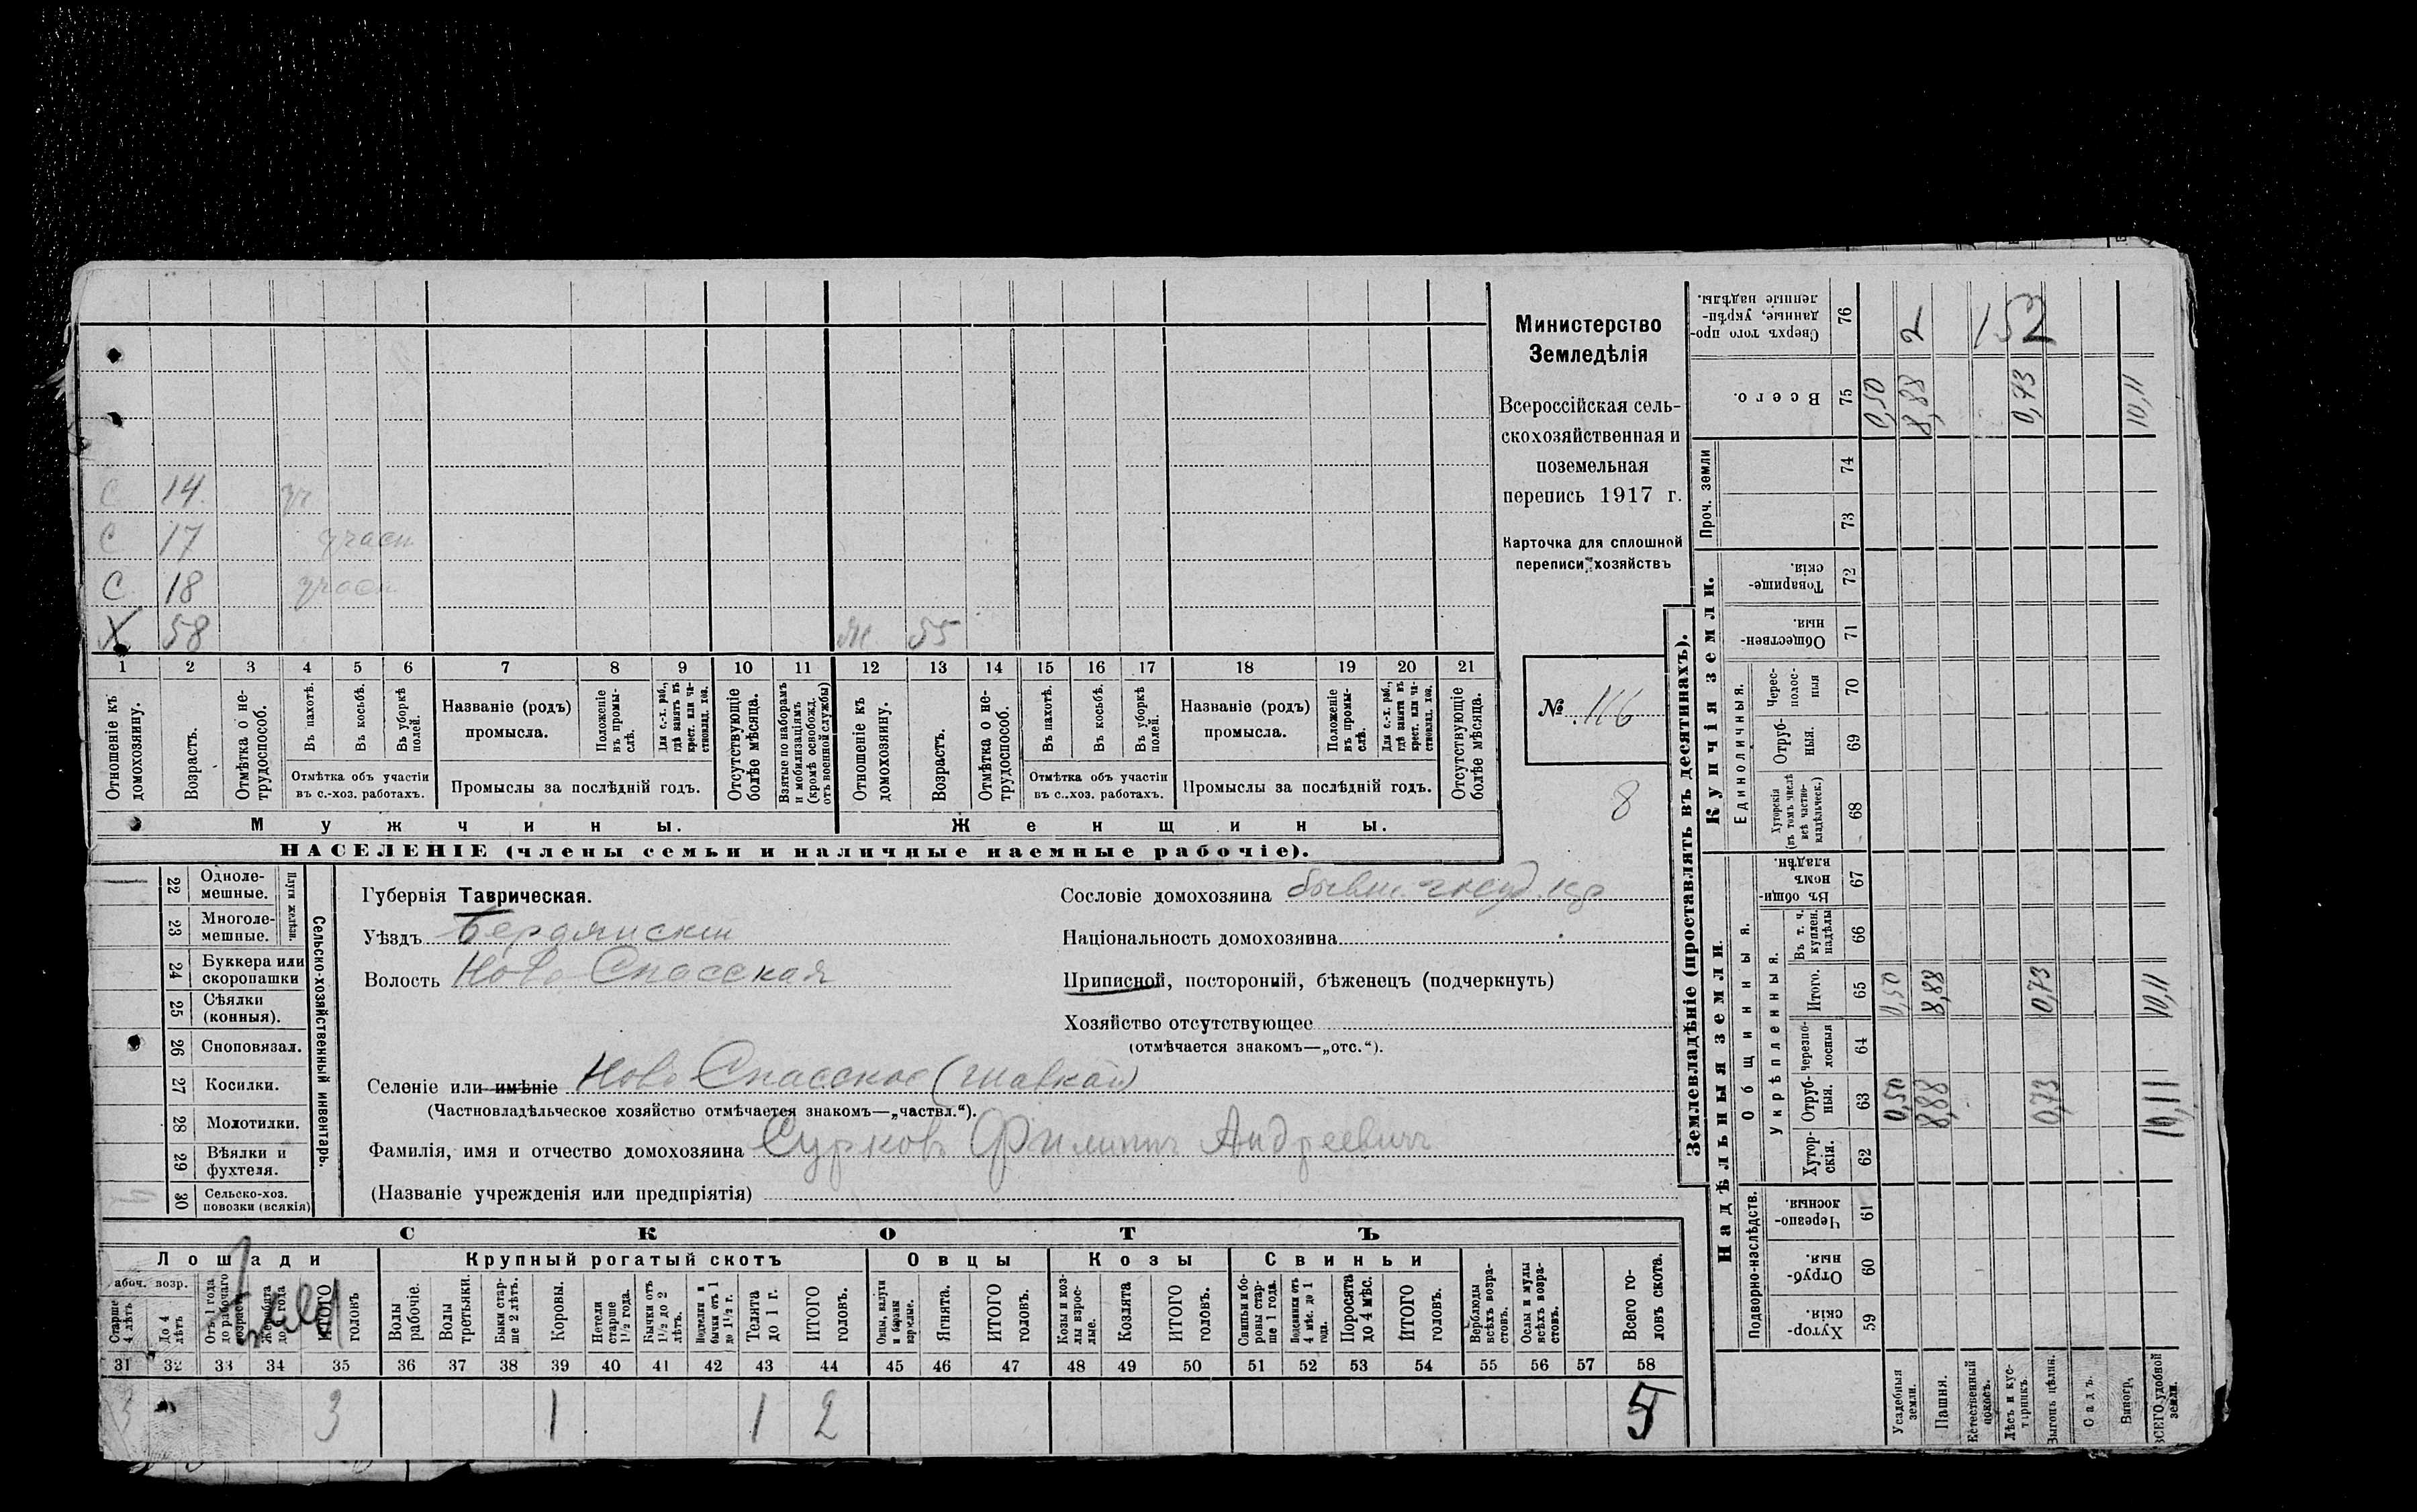 Министерство
Земледѣлія
Всероссійская сель-
скохозяйственная и
поземельная
перепись 1917 г.
Карточка для сплошной
переписи хозяйствъ
№ 116
8
С 14 уч
С 17 участ
С 18 участ
Х 58 Ж 55
1 2 3 4 5 6 7 8 9 10 11 12 13 14 15 16 17 18 19 20 21
Отношеніе къ домохозяину.
Возрастъ.
Отмѣтка о не-трудоспособ.
Въ пахотѣ.
Въ косьбѣ.
Въ уборкѣ полей.
Отмѣтка объ участіи
въ с.-хоз. работахъ.
Названіе (родъ)
промысла.
Положеніе въ промы-слѣ.
Для с.-х. раб., гдѣ занятъ въ крест. или ча-стновлад. хоз.
Промыслы за послѣдній годъ.
Отсутствующіе болѣе мѣсяца.
Взятые по наборамъ и мобилизаціямъ (кромѣ освобожд. отъ военной службы)
Отношеніе къ домохозяину.
Возрастъ.
Отмѣтка о не-трудоспособ.
Въ пахотѣ.
Въ косьбѣ.
Въ уборкѣ полей.
Отмѣтка объ участіи
въ с.-хоз. работахъ.
Названіе (родъ)
промысла.
Положеніе въ промы-слѣ.
Для с.-х. раб., гдѣ занята въ крест. или ча-стновлад. хоз.
Промыслы за послѣдній годъ.
Отсутствующіе болѣе мѣсяца.
Мужчины. Женщины.
НАСЕЛЕНІЕ (члены семьи и наличные наемные рабочіе).
Сельско-хозяйственный инвентарь.
Плуги желѣзн.
22 Одноле-мешные.
23 Многоле-мешные.
24 Буккера или скоропашки
25 Сѣялки (конныя).
26 Сноповязал.
27 Косилки.
28 Молотилки.
29 Вѣялки и фухтеля.
30 Сельско-хоз. повозки (всякія)
Губернія Таврическая.
Уѣздъ Бердянскій
Волость Ново Спасская
Сословіе домохозяина бывш. госуд. кр
Національность домохозяина
Приписной, посторонній, бѣженецъ (подчеркнуть)
Хозяйство отсутствующее
(отмѣчается знакомъ—„отс.“).
Селеніе или имѣніе Ново Спасское (Шавкай)
(Частновладѣльческое хозяйство отмѣчается знакомъ—„частвл.“).
Фамилія, имя и отчество домохозяина Сурковъ Филиппъ Андреевичъ
(Названіе учрежденія или предпріятія)
СКОТЪ
Лошади Крупный рогатый скотъ Овцы Козы Свиньи
абоч. возр.
Старше 4 лѣтъ
До 4 лѣтъ
Отъ 1 года до рабочаго возраста
Жеребята до 1 года
ИТОГО головъ
Волы рабочіе.
Волы третьяки.
Быки стар-ше 2 лѣтъ.
Коровы.
Нетели старше 1½ года.
Бычки отъ 1½ до 2 лѣтъ.
Подтелки и бычки отъ 1 до 1½ г.
Телята до 1 г.
ИТОГО головъ.
Овцы, валухи и бараны взрослые.
Ягнята.
ИТОГО головъ.
Козы и коз-лы взрос-лые.
Козлята
ИТОГО головъ.
Свиньи и бо-ровы стар-ше 1 года.
Подсвинки отъ 4 мѣс. до 1 года.
Поросята до 4 мѣс.
ИТОГО головъ.
Верблюды всѣхъ возра-стовъ.
Ослы и мулы всѣхъ возра-стовъ.
Всего го-ловъ скота.
31 32 33 34 35 36 37 38 39 40 41 42 43 44 45 46 47 48 49 50 51 52 53 54 55 56 57 58
3 3 1 1 2 5
Землевладѣніе (проставлять въ десятинахъ).
Надѣльныя земли.
Купчія земли.
Проч. земли
Подворно-наслѣдств.
Общинныя.
Укрѣпленныя.
Единоличныя.
Хутор-скія. 59
Отруб-ныя. 60
Черезпо-лосныя 61
Хутор-скія. 62
Отруб-ныя. 63
Черезпо-лосныя 64
Итого. 65
Въ т. ч. куплен. надѣлы 66
Въ общи-номъ владѣн. 67
Хуторскія (въ томъ числѣ всѣ частно-владѣльческ.) 68
Отруб-ныя. 69
Черес-полос-ныя 70
Обществен-ныя. 71
Товарище-скія. 72
73
74
Всего. 75
Сверхъ того про-данные, укрѣп-ленные надѣлы. 76
Усадебныя земли. 0,50 0,50 0,50
Пашня. 8,88 8,88 8,88 2
Естественный покосъ.
Лѣсъ и кус-тарникъ.
Выгонъ цѣлин. 0,73 0,73 0,73
Садъ.
Виногр.
ВСЕГО удобной земли. 10,11 10,11 10,11
152